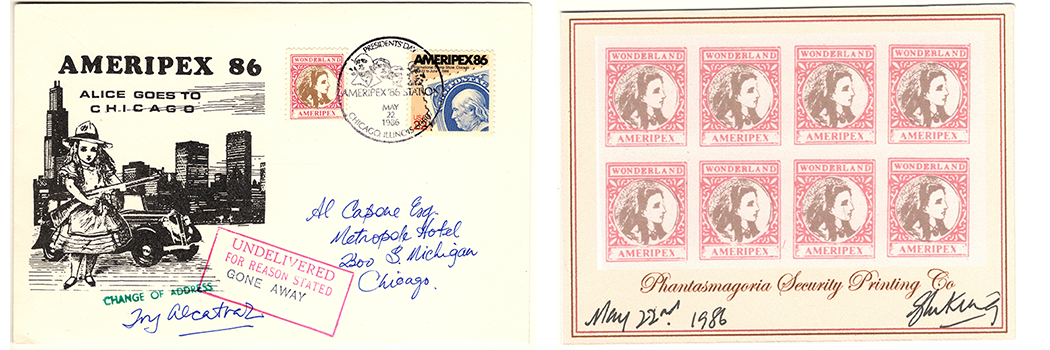 AMERIPEX 86
ALICE GOES TO
CHICAGO
WONDERLAND
AMERIPEX
PRESIDENTS' DAY
AMERIPEX '86 STATION
MAY
22
1986
CHICAGO, ILLINOIS
AMERIPEX 86
International Stamp Show Chicago
USA
22
POSTAGE
Al Capone Esq.
Metropole Hotel
2300 S. Michigan
Chicago.
UNDELIVERED
FOR REASON STATED
GONE AWAY
CHANGE OF ADDRESS
Try Alcatraz
WONDERLAND WONDERLAND WONDERLAND WONDERLAND
AMERIPEX AMERIPEX AMERIPEX AMERIPEX
WONDERLAND WONDERLAND WONDERLAND WONDERLAND
AMERIPEX AMERIPEX AMERIPEX AMERIPEX
Phantasmagoria Security Printing Co
May 22nd. 1986